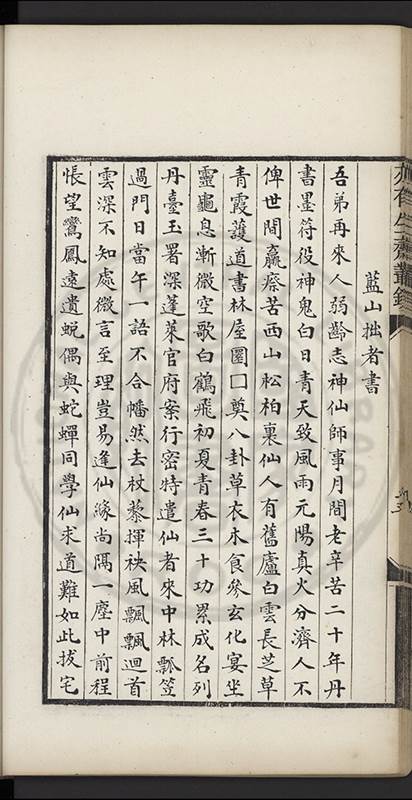 藍山拙者書
吾弟再來人弱齡志神仙師事月間老辛苦二十年丹
書墨符役神鬼白日青天致風雨元陽真火分濟人不
俾世間羸瘵苦西山松柏裏仙人有舊廬白雲長芝草
青霞護道書林屋圜□奠八卦草衣木食參玄化宴坐
靈龜息漸微空歌白鶴飛初夏青春三十功累成名列
丹臺玉署深蓬萊官府案行密特遣仙者來中林瓢笠
過門日當午一語不合幡然去杖藜揮袂風飄飄迴首
雲深不知處微言至理豈易逢仙緣尚隔一塵中前程
悵望鸞鳳遠遺蛻偶與蛇蟬同學仙求道難如此拔宅
生齋叢錄